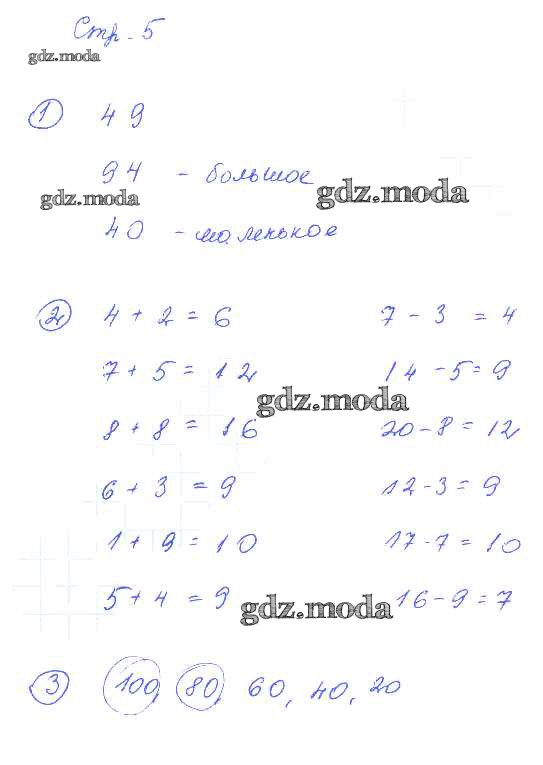 Стр. 5
gdz.moda
1 49
94 - большое
gdz.moda gdz.moda
40 - маленькое
2 4 + 2 = 6 7 - 3 = 4
7 + 5 = 12 14 - 5 = 9
gdz.moda
8 + 8 = 16 20 - 8 = 12
6 + 3 = 9 12 - 3 = 9
1 + 9 = 10 17 - 7 = 10
5 + 4 = 9 16 - 9 = 7
gdz.moda
3 100, 80, 60, 40, 20